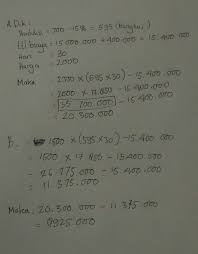 A. Dik :
Produksi = 700 - 15% = 595 (bungkus)
biaya = 15.000.000 + 400.000 = 15.400.000
Hari = 30
Harga = 2000
Maka = 2000 × (595 × 30) - 15.400.000
= 2000 × 17.850 - 15.400.000
= 35.700.000 - 15.400.000
= 20.300.000
B. = 1500 × (595 × 30) - 15.400.000
= 1500 × 17.850 - 15.400.000
= 26.775.000 - 15.400.000
= 11.375.000
Maka = 20.300.000 - 11.375.000
= 8925.000